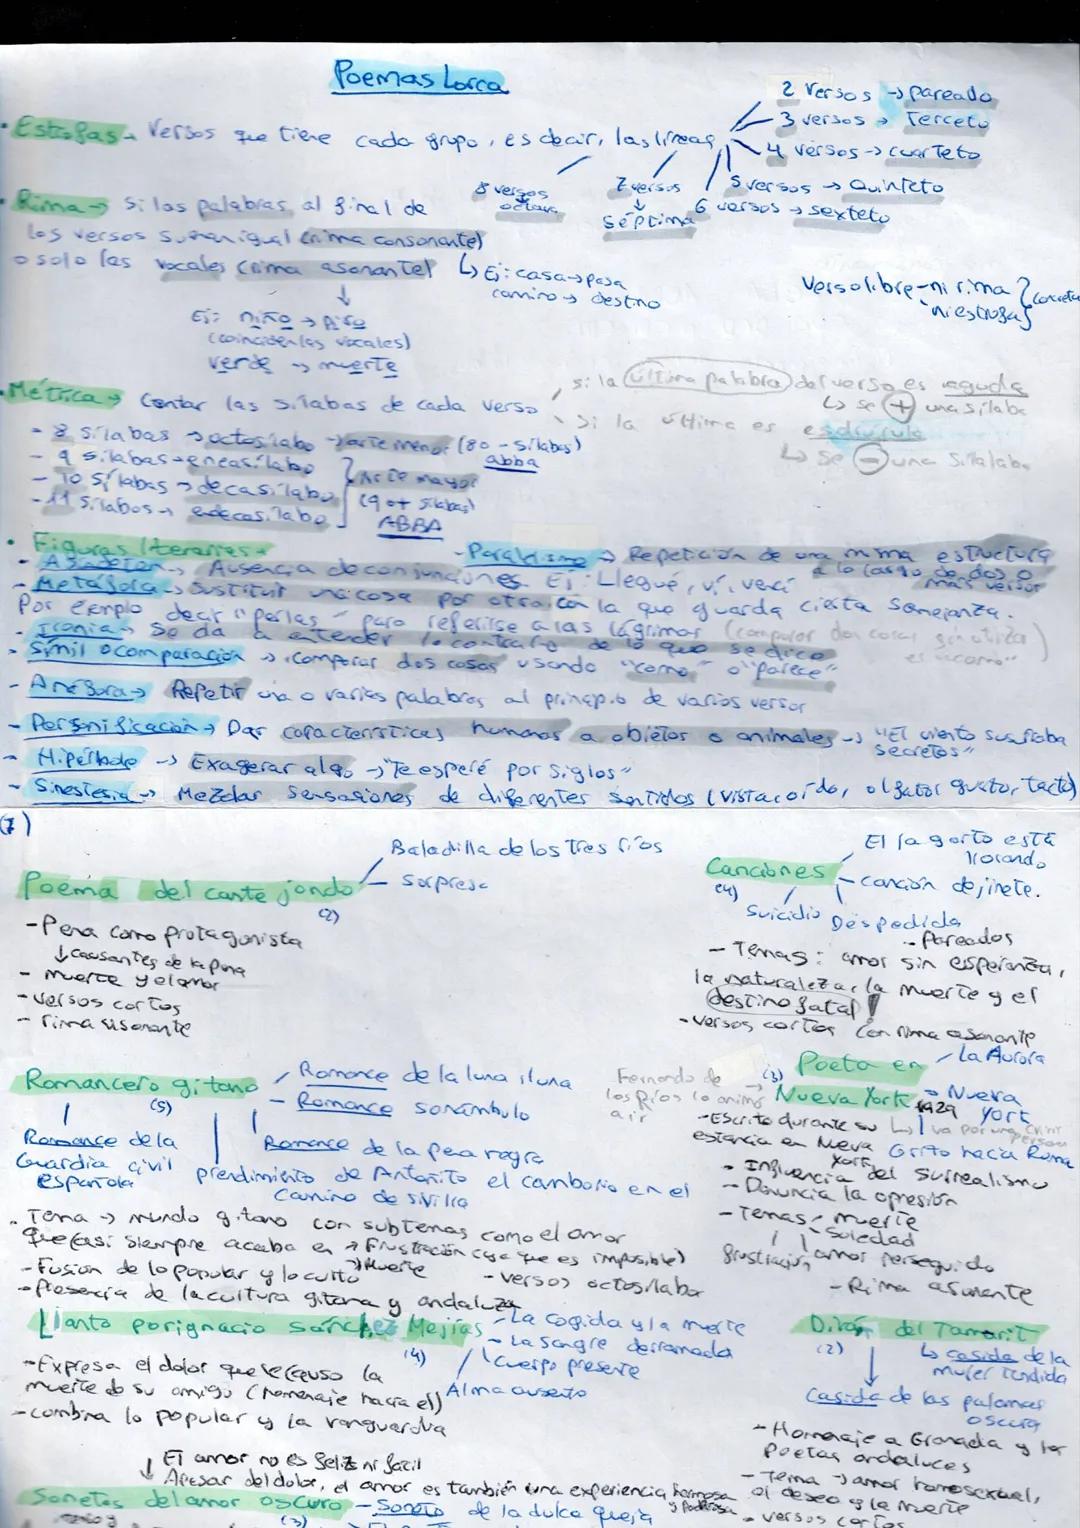 Poemas Lorca
2 versos → pareado
3 versos → Terceto
4 versos → cuarteto
5 versos → Quinteto
6 versos → sexteto
7 versos ↓ séptima
8 versos octava
• Estrofas → Versos que tiene cada grupo, es decir, las líneas
• Rima → Si las palabras al final de
los versos suenan igual (rima consonante)
o solo las vocales (rima asonante)
↳ Ej: casa → pasa
camino → destino
Ej: niño → piso
(coinciden las vocales)
verde → muerte
Verso libre - ni rima
ni estrofas
• Métrica → Contar las sílabas de cada verso
si la última palabra del verso es aguda
↳ se + una sílaba
Si la última es esdrújula
↳ Se - una sílaba
- 8 sílabas → octosílabo → arte menor (8 o - sílabas)
abba
- 9 sílabas → eneasílabo
- 10 sílabas → decasílabo
- 11 sílabos → endecasílabo
Arte mayor
(9 o + sílabas)
ABBA
• Figuras literarias →
- Paralelismo → Repetición de una misma estructura
a lo largo de dos o
más versos
- Asíndeton → Ausencia de conjunciones. Ej: Llegué, vi, vencí
- Metáfora → Sustituir una cosa por otra con la que guarda cierta semejanza.
Por ejemplo decir "perlas" para referirse a las lágrimas (comparar dos cosas sin utilizar
"como")
- Ironía → Se da a entender lo contrario de lo que se dice
- Símil o comparación → Comparar dos cosas usando "como" o "parece"
- Anáfora → Repetir una o varias palabras al principio de varios versos
- Personificación → Dar características humanas a objetos o animales → "El viento susurraba
secretos"
- Hipérbole → Exagerar algo → "Te esperé por siglos"
- Sinestesia → Mezclar sensaciones de diferentes sentidos (vista, oído, olfato, gusto, tacto)
Poema del cante jondo
(2)
Baladilla de los Tres ríos
Sorpresa
- Pena como protagonista
↓ causantes de la pena
- muerte y el amor
- versos cortos
- rima asonante
Canciones
(4)
El lagarto está
llorando
canción de jinete.
Suicidio
Despedida
- Pareados
- Temas: amor sin esperanza,
la naturaleza, la muerte y el
destino fatal
- versos cortos con rima asonante
Romancero gitano
(5)
Romance de la luna, luna
Romance sonámbulo
Romance de la pena negra
Romance de la
Guardia civil
española
prendimiento de Antoñito el camborio en el
Camino de sivilla
- Tema → mundo gitano con subtemas como el amor
que casi siempre acaba en → Frustración (ya que es imposible)
→ Muerte
- Fusión de lo popular y lo culto
- versos octosílabos
- Presencia de la cultura gitana y andaluza
Poeta en
Nueva York
(3)
Fernando de
los Ríos lo anima
a ir
La Aurora
Nueva
York
1929
Grito hacia Roma
- Escrito durante su
estancia en Nueva York
- Influencia del surrealismo
- Denuncia la opresión
- Temas muerte
soledad
frustración
amor perseguido
- Rima asonante
Llanto por ignacio sánchez Mejías
(4)
La cogida y la muerte
La sangre derramada
Cuerpo presente
Alma ausente
- Expresa el dolor que le causo la
muerte de su amigo (homenaje hacia el)
- combina lo popular y la vanguardia
Diván del Tamarit
(2)
↳ casida de la
mujer tendida
Casida de las palomas
oscura
- Homenaje a Granada y los
poetas andaluces
- Tema → amor homosexual,
el deseo y la muerte
- versos cortos
El amor no es feliz ni fácil
Apesar del dolor, el amor es también una experiencia hermosa
y poderosa
Sonetos del amor oscuro
(3)
- Soneto de la dulce queja